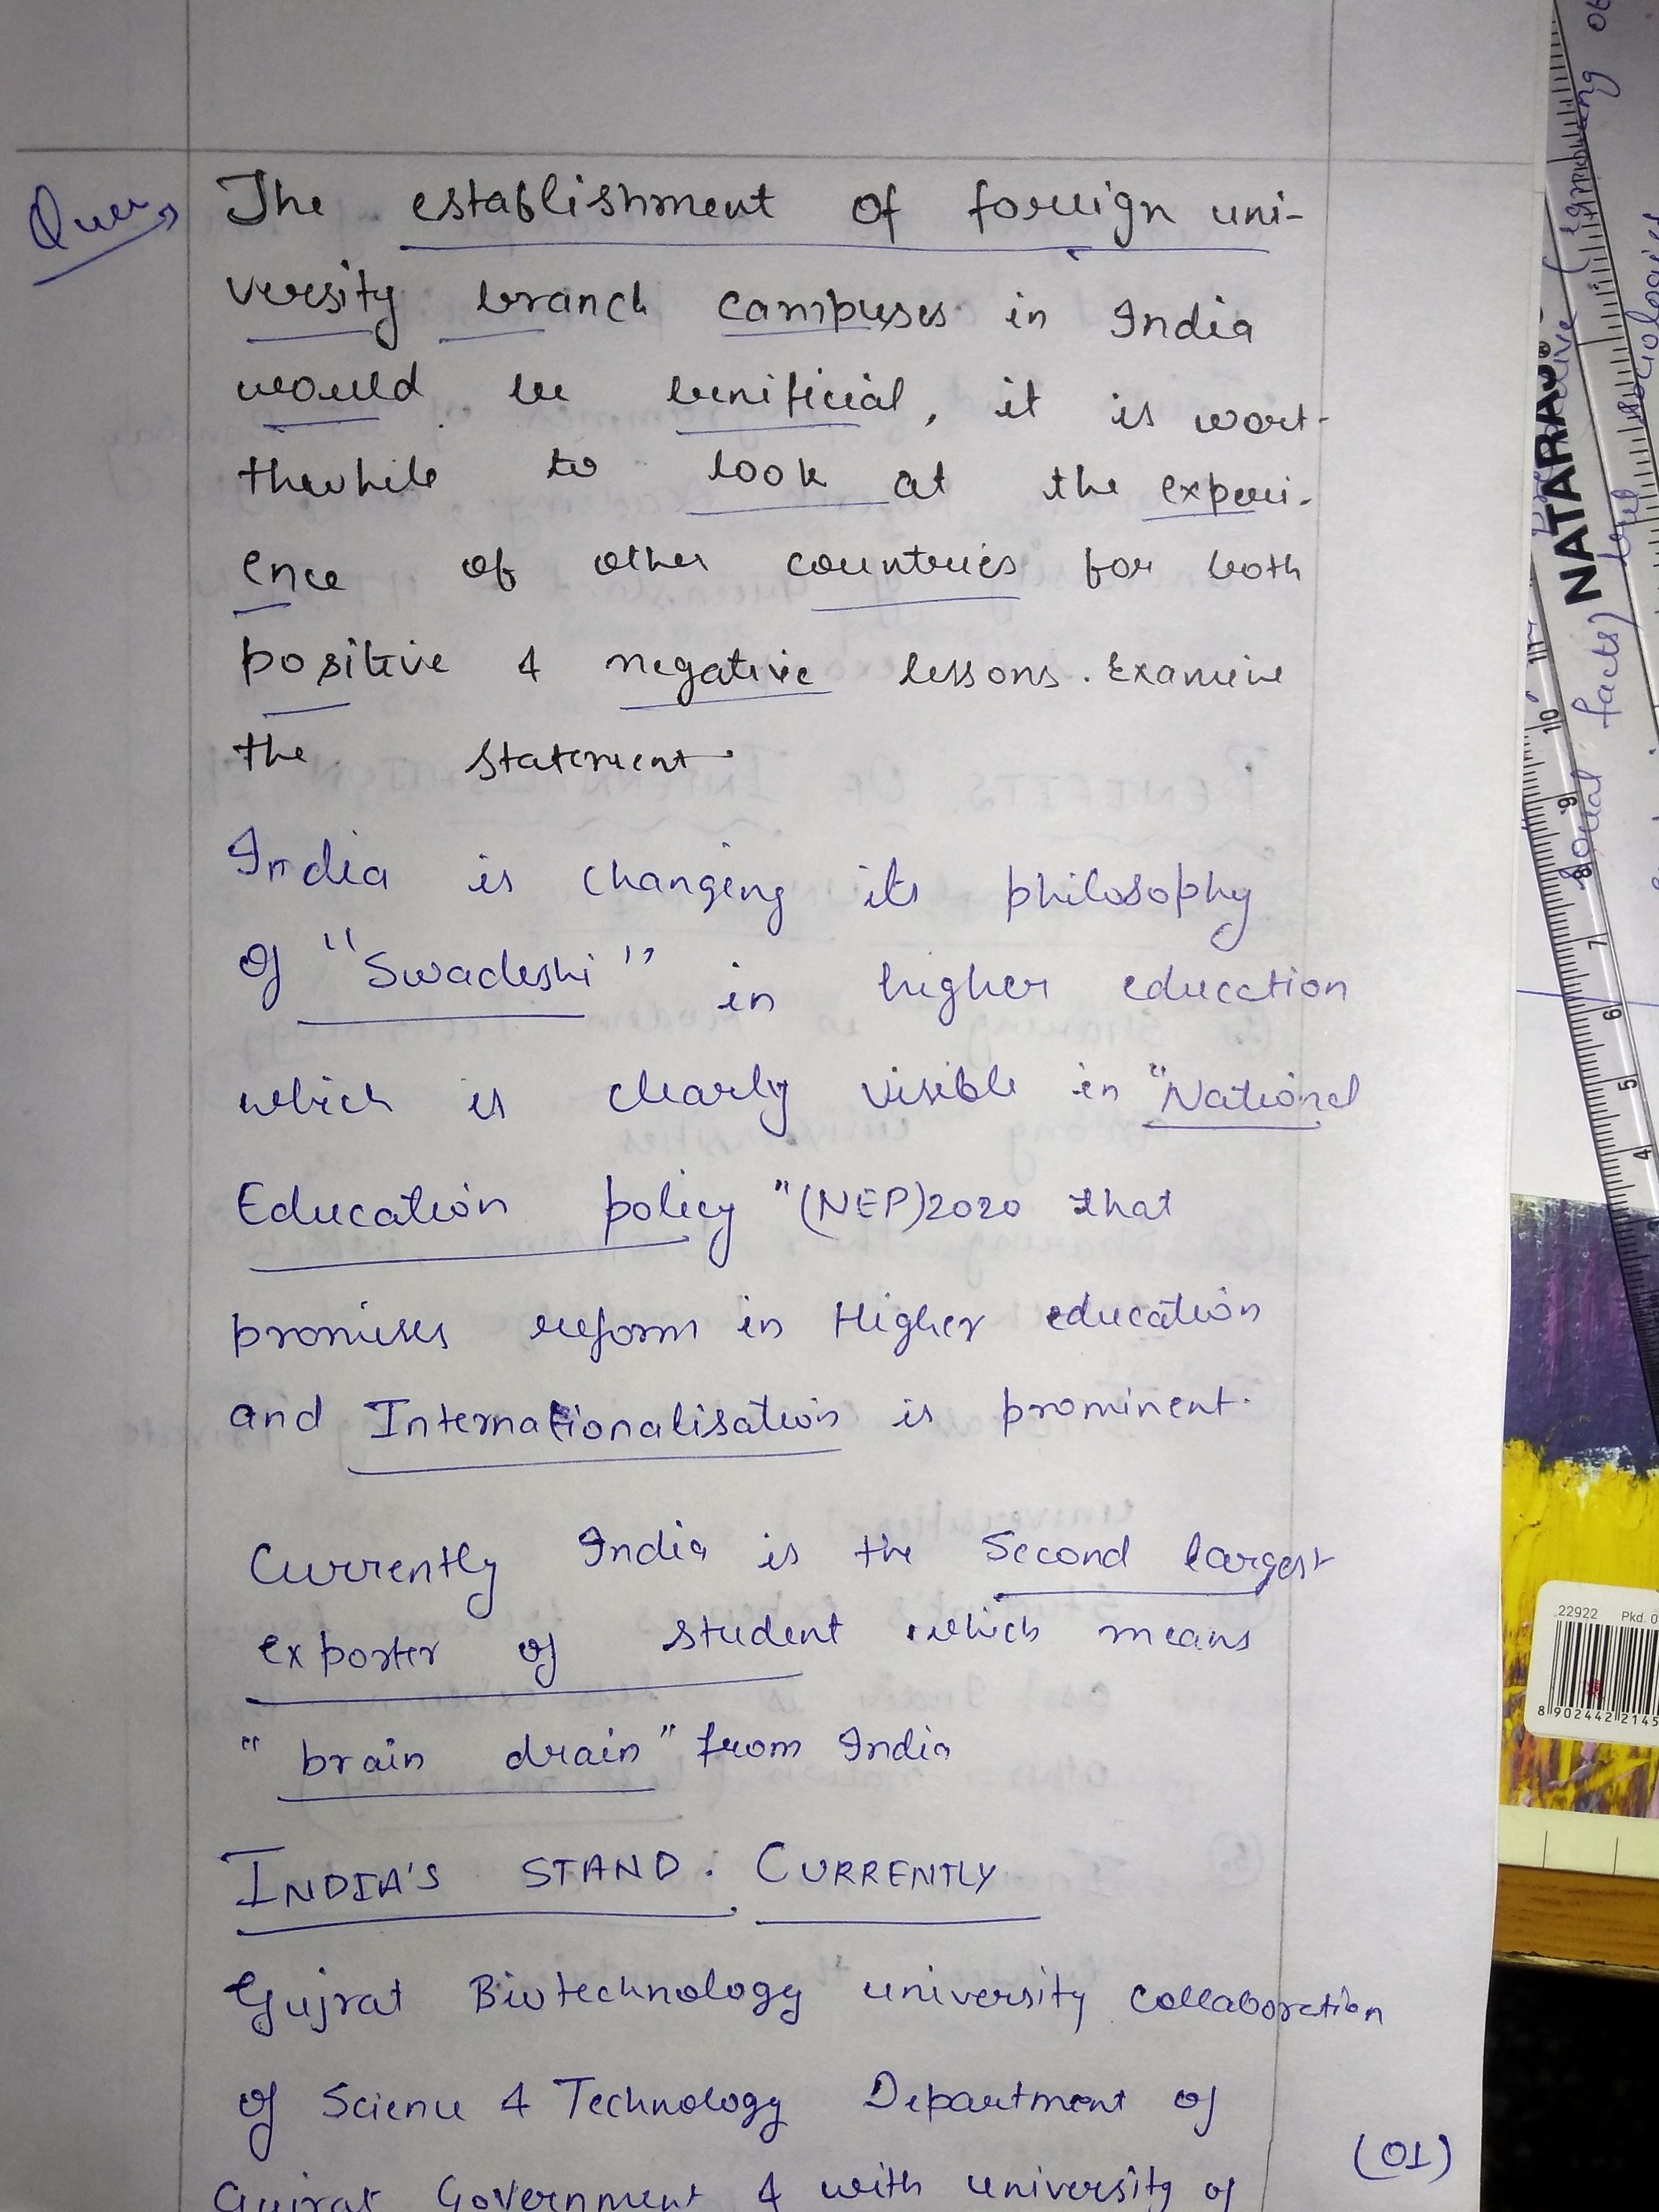 Ques
The establishment of foreign uni-
versity branch campuses in India
would be benificial, it is wort-
thewhile to look at the experi-
ence of other countries for both
positive & negative lessons. Examine
the statement
India is changing its philosophy
of "Swadeshi" in higher education
which is clearly visible in "National
Education policy" (NEP) 2020 that
promises reform in Higher education
and Internationalisation is prominent.
Currently India is the Second largest
exporter of student which means
"brain drain" from India
INDIA'S STAND. CURRENTLY
Gujrat Biotechnology university collaboration
of Science & Technology Department of
Gujrat Government & with university of
(01)
NATARAJ
10
9
8
7
6
5
4
social facts)
sociologies
22922 Pkd. 0
8 902442 2145